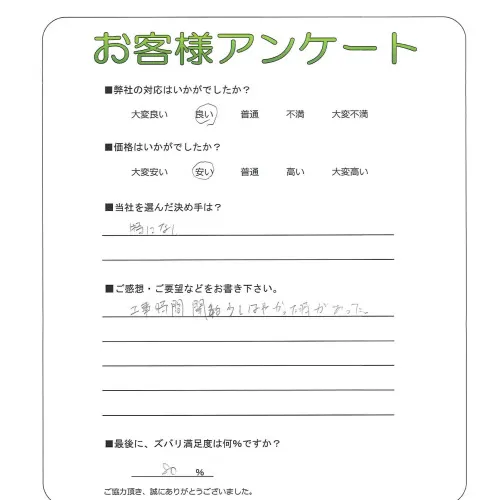 お客様アンケート
■弊社の対応はいかがでしたか？
大変良い 良い 普通 不満 大変不満
■価格はいかがでしたか？
大変安い 安い 普通 高い 大変高い
■当社を選んだ決め手は？
特になし
■ご感想・ご要望などをお書き下さい。
工事時間
■最後に、ズバリ満足度は何％ですか？
80 ％
ご協力頂き、誠にありがとうございました。